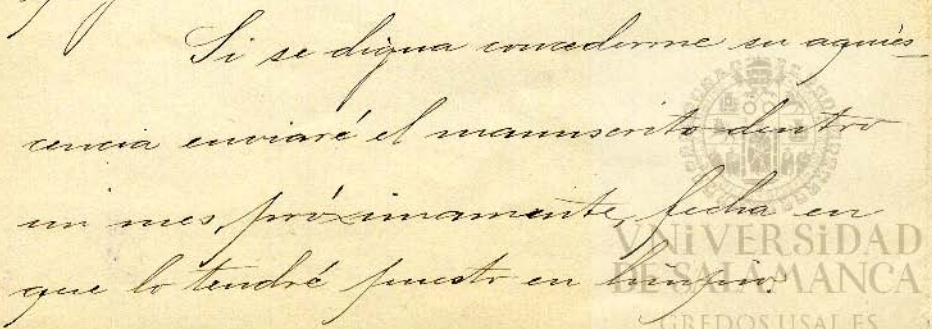 Si se digna concederme su aquies-
cencia enviaré el manuscrito dentro
un mes, próximamente, fecha en
que lo tendré puesto en limpio.
VNiVERSiDAD
DE SALAMANCA
GREDOS.USAL.ES